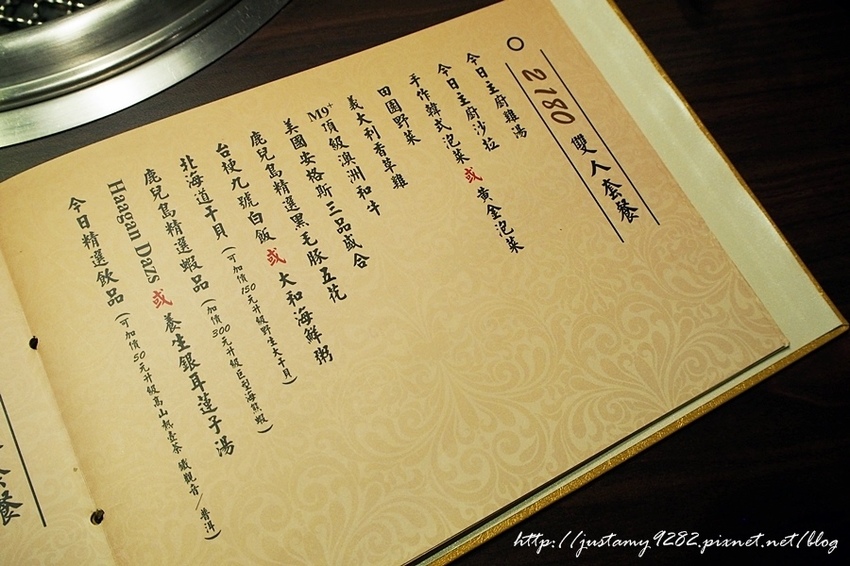 2180 雙人套餐
今日主廚雞湯
今日主廚沙拉
手作韓式泡菜 或 黃金泡菜
田園野菜
義大利香草雞
M9+頂級澳洲和牛
美國安格斯三品盛合
鹿兒島精選黑毛豚五花
台梗九號白飯 或 大和海鮮粥
北海道干貝 (可加價150元升級野生大干貝)
鹿兒島精選蝦品 (加價300元升級巨型海熊蝦)
Haagan Dazs 或 養生銀耳蓮子湯
今日精選飲品 (可加價50元升級高山熱壺茶 鐵觀音/普洱)
套餐
http://justamy9282.pixnet.net/blog